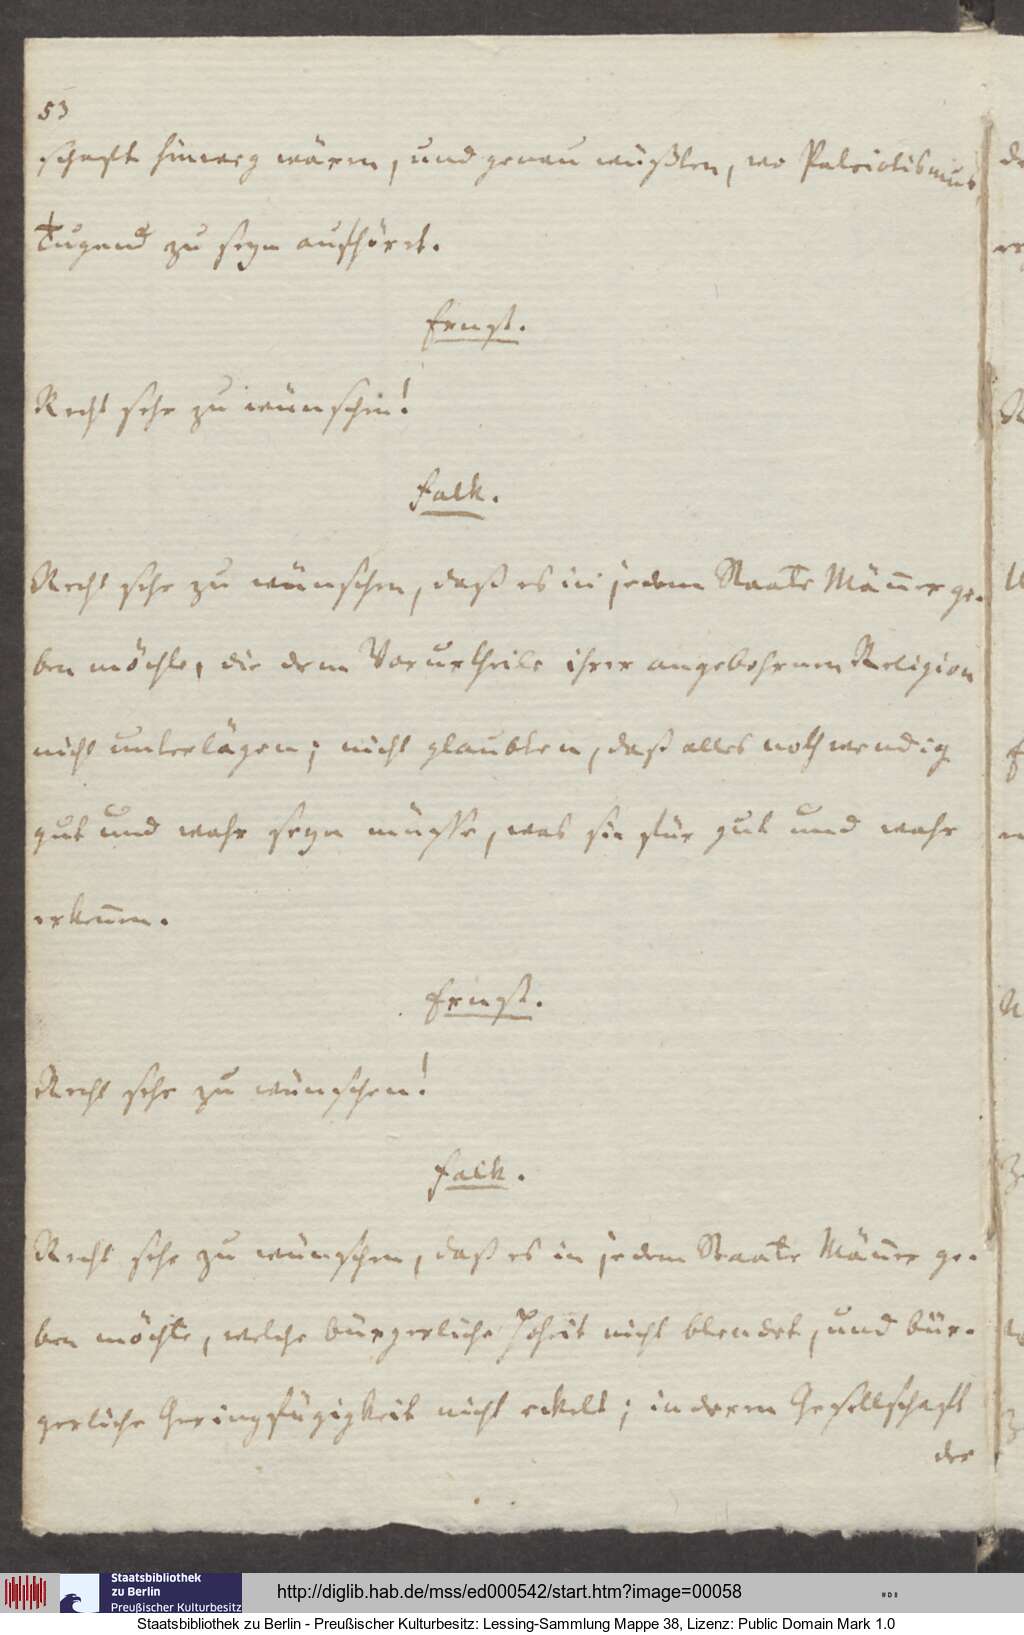 53
schaft hinweg wären, und genau wüßten, wo Patriotismus
Tugend zu seyn aufhöret.
Ernst.
Recht sehr zu wünschen!
Falk.
Recht sehr zu wünschen, daß es in jedem Staate Mäñer ge-
ben möchte, die dem Vorurtheile ihrer angebohrnen Religion
nicht unterlägen; nicht glaubten, daß alles nothwendig
gut und wahr seyn müsse, was sie für gut und wahr
erkeñen.
Ernst.
Recht sehr zu wünschen!
Falk.
Recht sehr zu wünschen, daß es in jedem Staate Mäñer ge-
ben möchte, welche bürgerliche Hoheit nicht blendet, und bür-
gerliche Geringfügigkeit nicht eckelt; in deren Gesellschaft
der
Staatsbibliothek
zu Berlin
Preußischer Kulturbesitz
http://diglib.hab.de/mss/ed000542/start.htm?image=00058
Staatsbibliothek zu Berlin - Preußischer Kulturbesitz: Lessing-Sammlung Mappe 38, Lizenz: Public Domain Mark 1.0